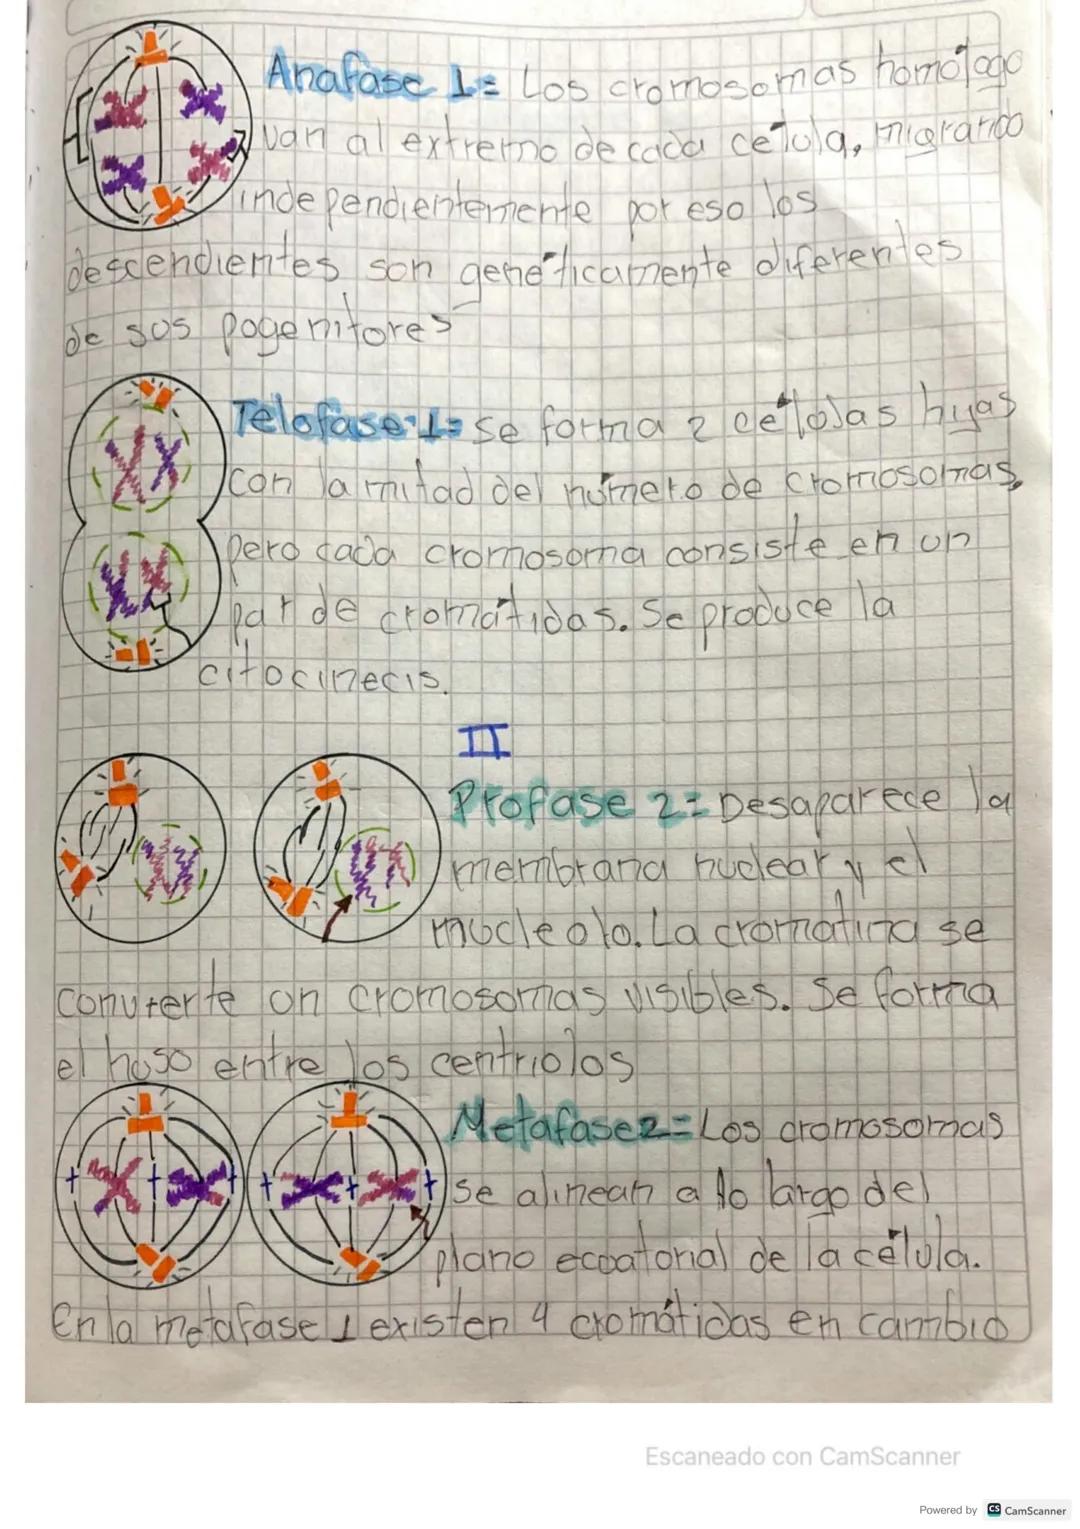 Anafase 1= Los cromosomas homólogo
van al extremo de cada celula, migrando
independientemente por eso los
descendientes son genéticamente diferentes
de sus pogenitores
Telofase 1= se forma 2 celulas hijas
con la mitad del número de cromosomas,
pero cada cromosoma consiste en un
par de cromátidas. Se produce la
citocinecis.
II
Profase 2= Desaparece la
membrana nuclear y el
nucleolo. La cromatina se
convierte en cromosomas visibles. Se forma
el huso entre los centriolos
Metafase 2= Los cromosomas
se alinean a lo largo del
plano ecuatorial de la célula.
En la metafase 1 existen 4 cromátidas en cambio
Escaneado con CamScanner
Powered by CS CamScanner